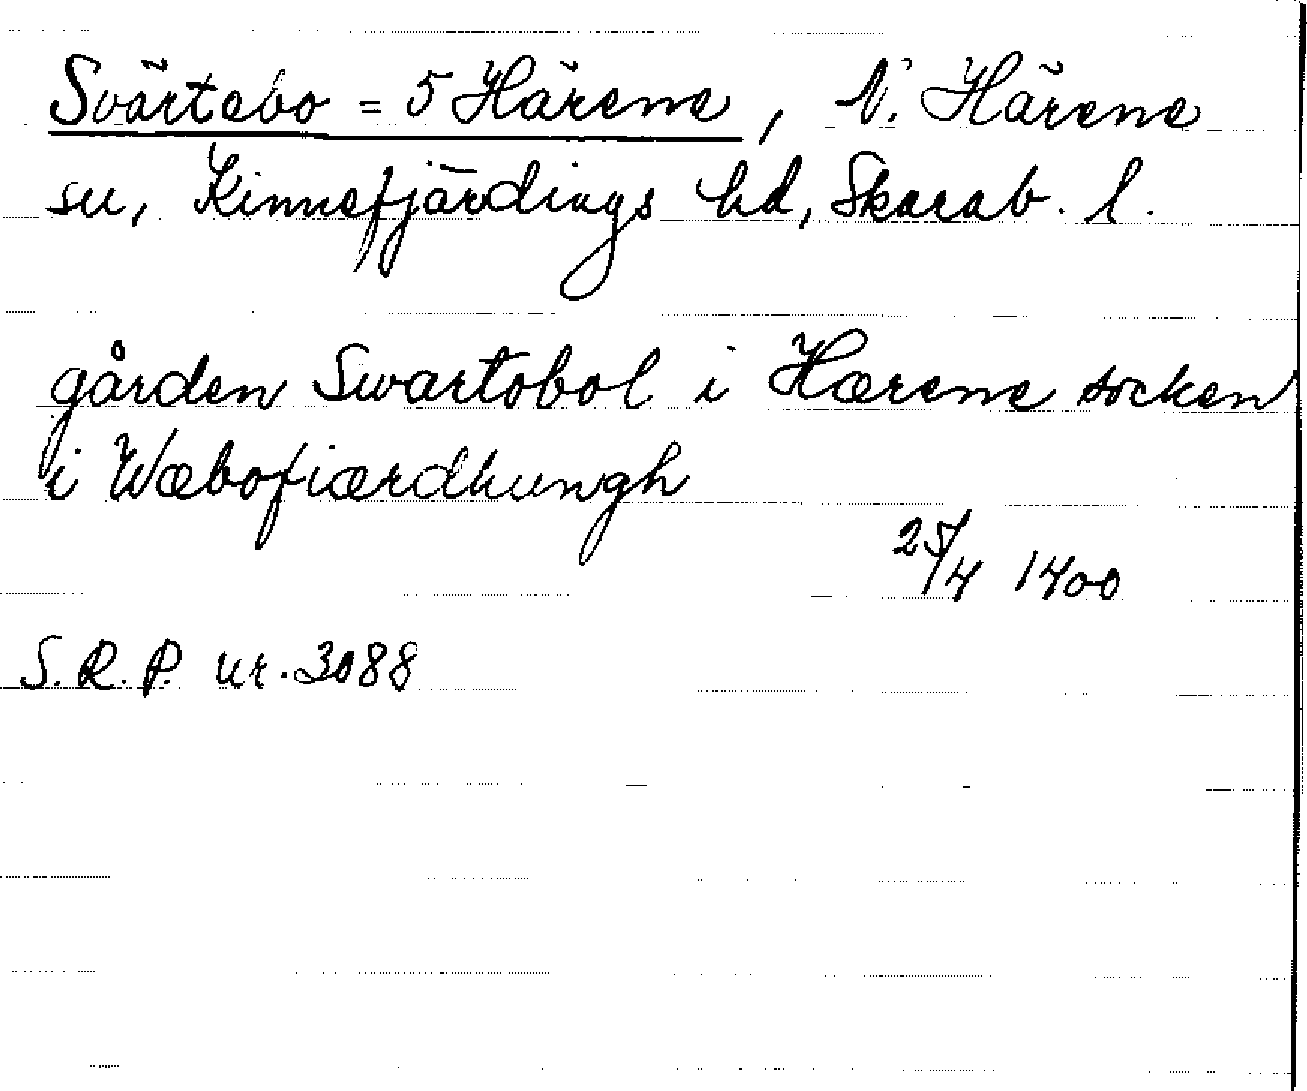 Svärtebo = 5 Härene, N. Härene
sn, Kinnefjärdings hd, Skarab. l.
gården Swartobol i Hærene socken
i Wæbofiærdhungh
25/4 1400
S.R.P. nr. 3088